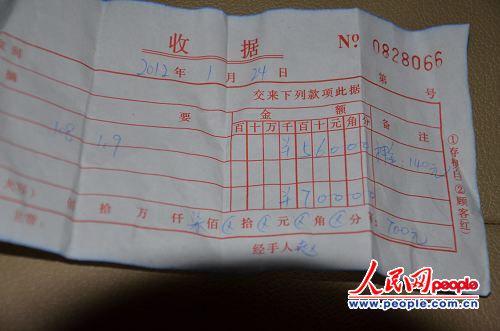 收 据 № 0828066
2012 年 1 月 24 日 第 号
交来下列款项此据
摘 要 金 额 备 注
百 十 万 千 百 十 元 角 分
18 19 ¥ 5 6 0 0 0 押金 140元
¥ 7 0 0 0 0
拾 万 仟 柒 佰 拾 元 角 分 700元
经手人
①存根白 ②顾客红
人民网 people
www.people.com.cn